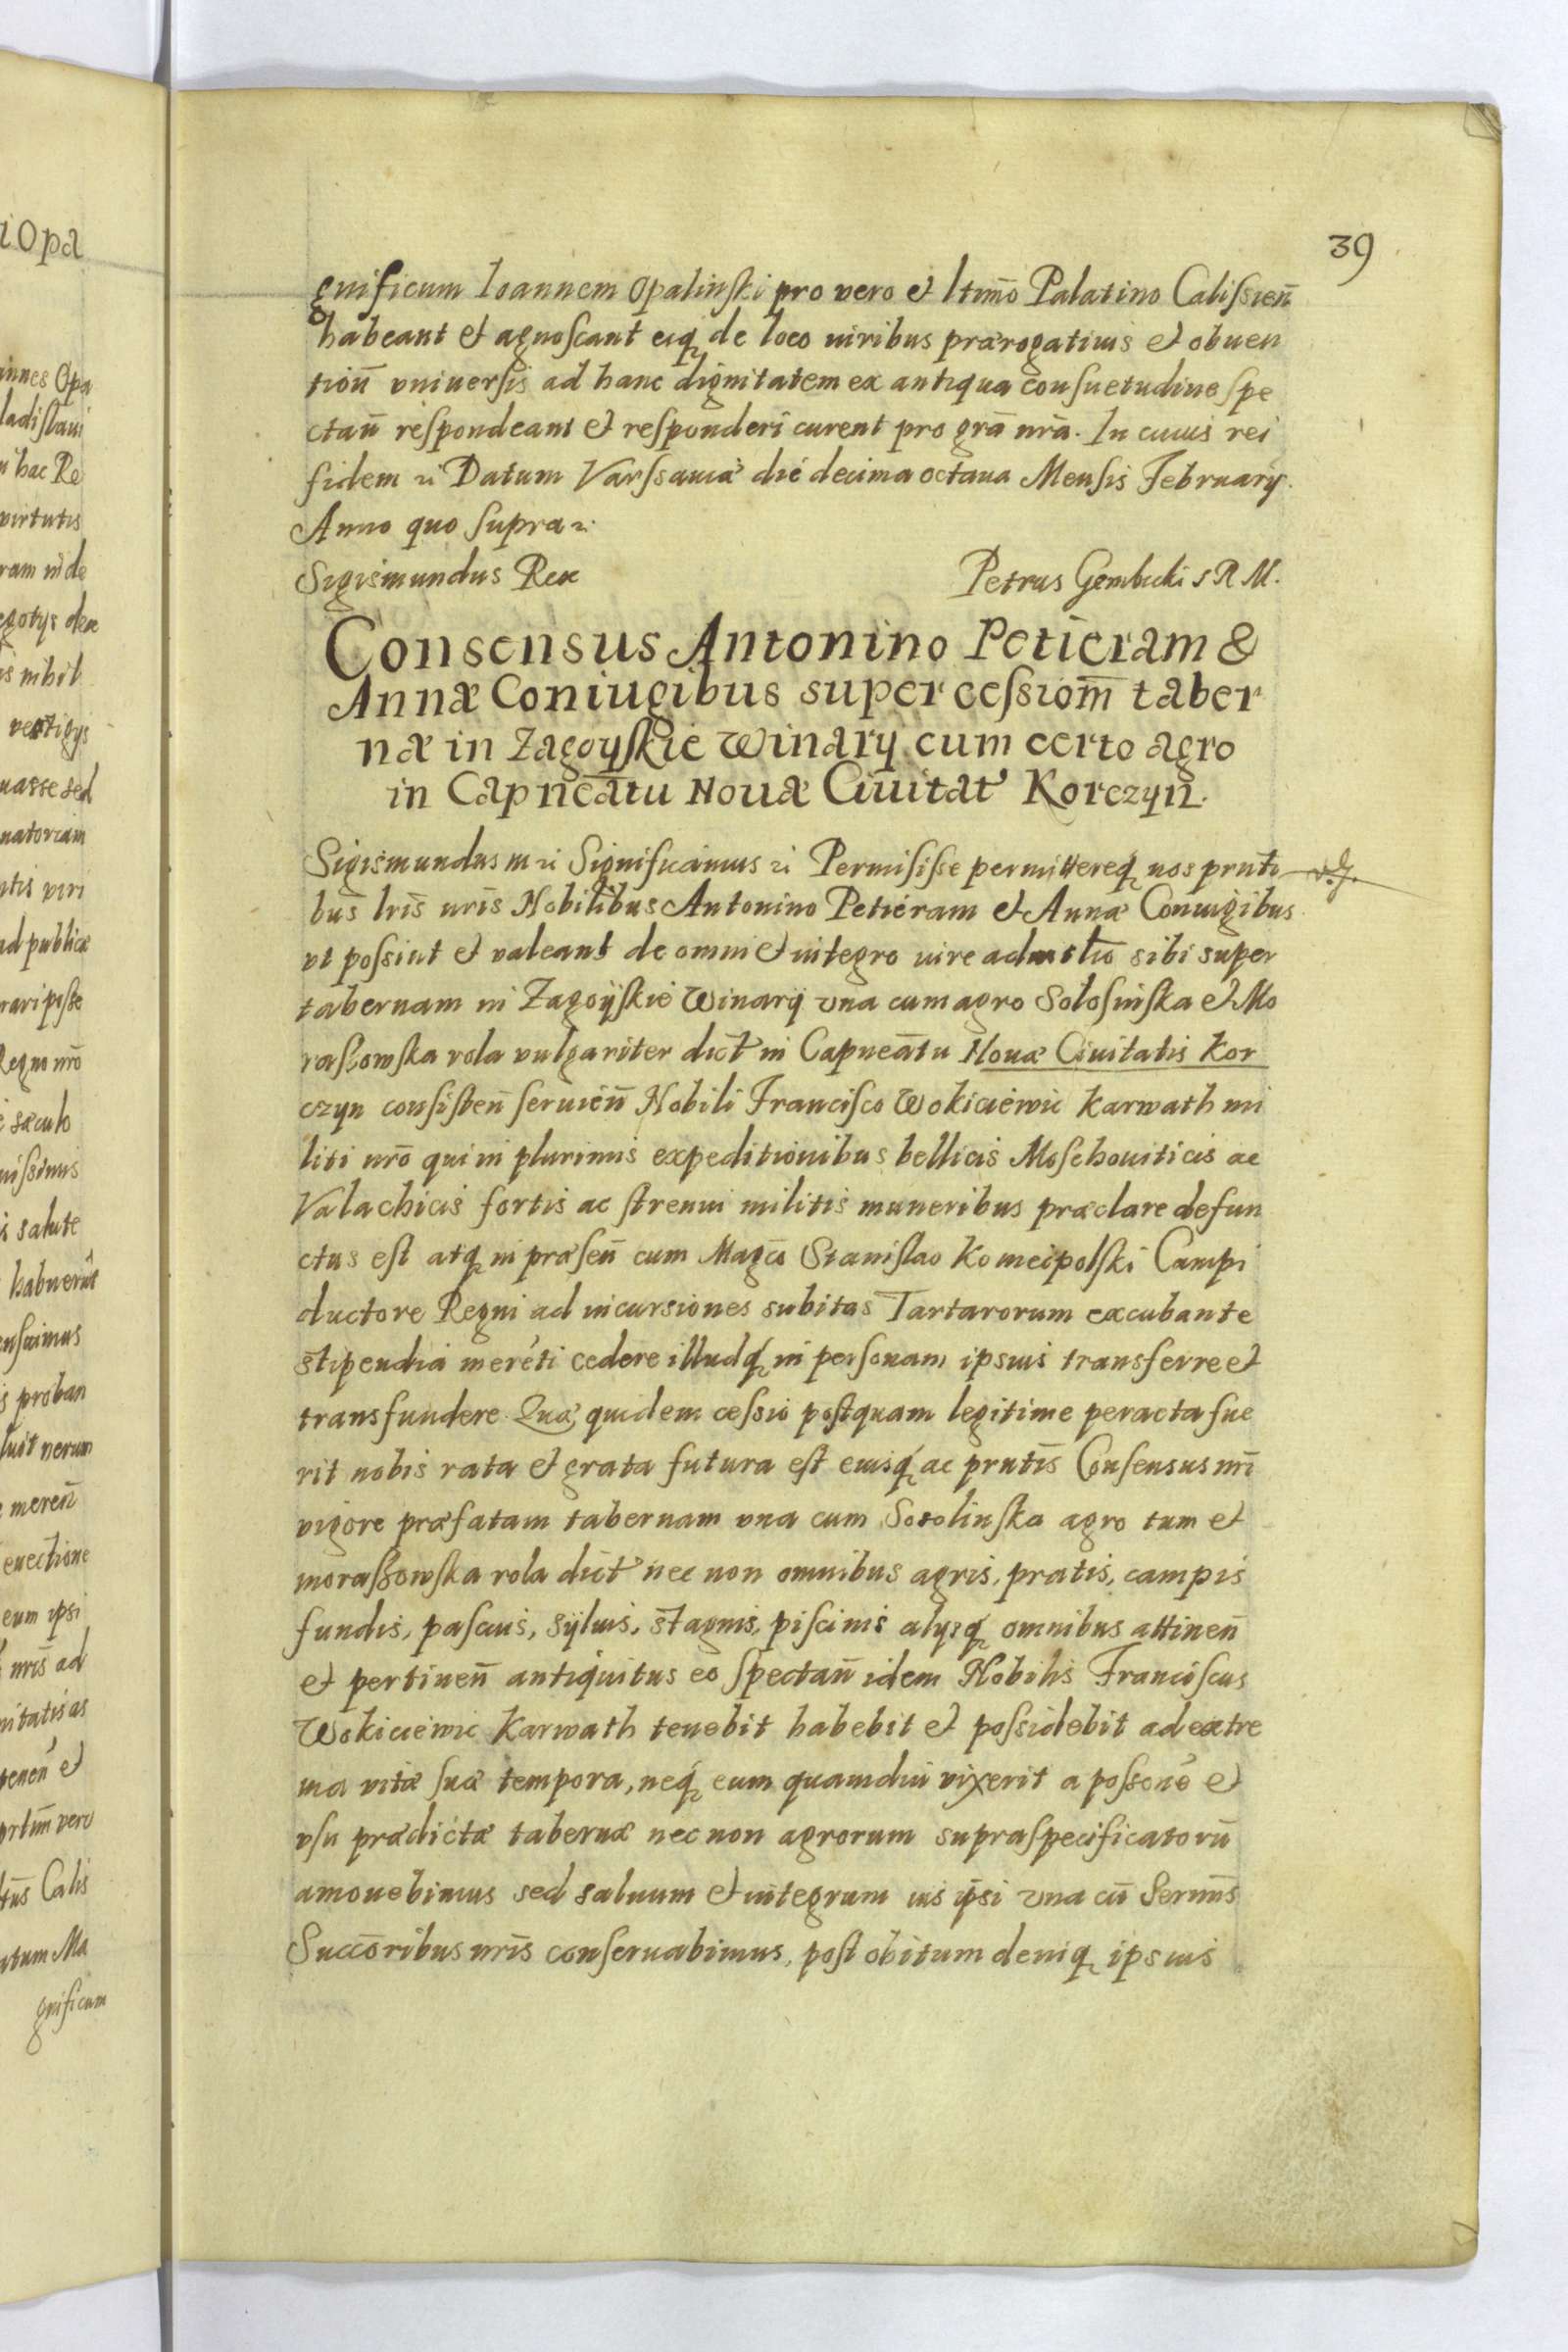 39
gnificum Ioannem Opalinski pro vero et ltimō Palatino Calissien̄
habeant et agnoscant eiq́ de loco iuribus prærogatiuis et obuen
tion̄ vniuersis ad hanc dignitatem ex antiqua consuetudine spe
ctan̄ respondeant et responderi curent pro grā nrā. In cuius rei
fidem ⁊ Datum Varssauiæ die decima octaua Mensis February.
Anno quo supra ⁊.
Sigismundus Rex
Petrus Gembicki s R M.
Consensus Antonino Petieram &
Annæ Coniugibus super cessiom̄ taber
næ in Zagoyskie Winary cum certo agro
in Capneātu Nouæ Ciuitat Korczyn.
Sigismundus m ⁊ Significamus ⁊ Permisisse permittereq́ nos prnti
bus lris nris Nobilibus Antonino Petieram et Annæ Coniugibus
vt possint et valeant de omni et integro iure aduitlio sibi super
tabernam in Zagoÿskie Winarÿ vna cum agro Solosinska et Mo
rassowska rola vulgariter dict in Capneātu Nouæ Ciuitatis Kor
czyn consisten̄ seruien̄ Nobili Francisco Wokiciewic Karwath mi
liti nrō qui in plurimis expeditionibus bellicis Moschouiticis ac
Valachicis fortis ac strenui militis muneribus præclare defun
ctus est atq́ in præsen̄ cum Magcō Stanislao Koniecpolski Campi
ductore Regni ad incursiones subitas Tartarorum excubante
stipendia mereti cedere illudq́ in personam ipsuis transferre et
transfundere. Quæ quidem cessio postquam legitime peracta fue
rit nobis rata et grata futura est eiusq́ ac prntis Consensus nri
vigore præfatam tabernam vna cum Sotolinska agro tum et
morassowska rola dict nec non omnibus agris, pratis, campis
fundis, pascuis, sÿluis, stagnis, piscinis alysq́ omnibus attinen̄
et pertinen̄ antiquitus eo spectan̄ idem Nobilis Franciscus
Wokiciewic Karwath tenebit habebit et possidebit ad extre
ma vitæ suæ tempora, neq́ eum quamdiu vixerit a possone et
vsu prædictæ tabernæ nec non agrorum supraspecificatorū
amouebimus sed saluum et integrum ius ipsi vna cū Sermis
Succoribus nris conseruabimus, post obitum deniq́ ipsuis